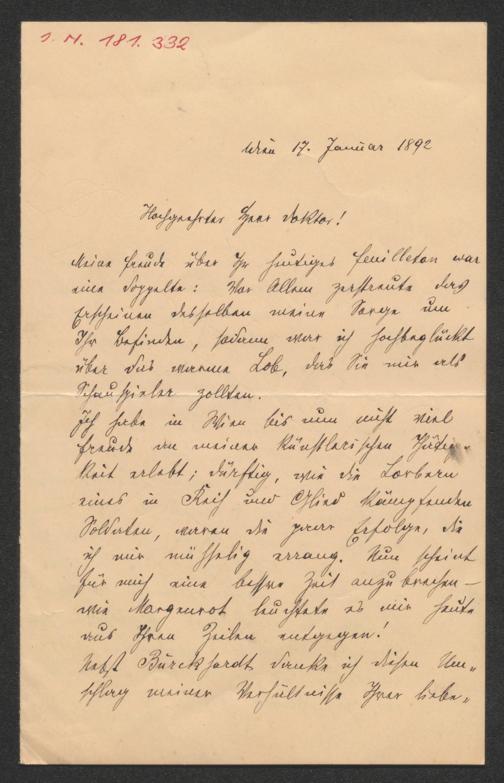 I. N. 181.332
Wien 17. Januar 1892
Hochgeehrter Herr Doktor!
Meine Freude über Ihr heutiges Feuilleton war
eine doppelte: Vor Allem zerstreute das
Erscheinen desselben meine Sorge um
Ihr Befinden, sodann war ich hochbeglückt
über das warme Lob, das Sie mir als
Schauspieler zollten.
Ich habe in Wien bis nun nicht viel
Freude an meiner künstlerischen Thätig-
keit erlebt; dürftig, wie die Lorbern
eines in Reih und Glied kämpfenden
Soldaten, waren die paar Erfolge, die
ich mir mühselig errang. Nun scheint
für mich eine bessre Zeit anzubrechen –
wie Morgenrot leuchtete es mir heute
aus Ihren Zeilen entgegen!
Nebst Burckhardt danke ich diesen Um-
schlag meiner Verhältnisse Ihrer liebe-